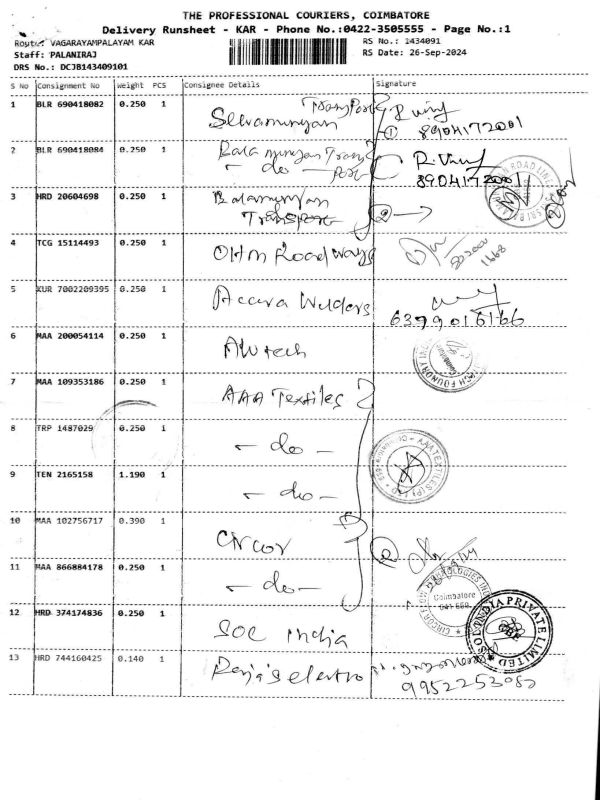 THE PROFESSIONAL COURIERS, COIMBATORE
Delivery Runsheet - KAR - Phone No.:0422-3505555 - Page No.:1
Route: VAGARAYAMPALAYAM KAR
RS No.: 1434091
Staff: PALANIRAJ
RS Date: 26-Sep-2024
DRS No.: DCJB143409101
S No Consignment No Weight PCS Consignee Details Signature
1 BLR 690418082 0.250 1 Transport
8904172001
2 BLR 690418084 0.250 1
- do -
8904172001
3 HRD 20604698 0.250 1 Balamurugan
Transport
4 TCG 15114493 0.250 1 OHM Roadways
5 KUR 7002209395 0.250 1 Accura Welders
6 MAA 200054114 0.250 1
7 MAA 109353186 0.250 1 AAA Textiles
8 TRP 1487029 0.250 1 - do -
9 TEN 2165158 1.190 1 - do -
10 MAA 102756717 0.390 1 Circor
11 MAA 866884178 0.250 1 - do -
Coimbatore
641 659
12 HRD 374174836 0.250 1 India
INDIA PRIVATE LIMITED
13 HRD 744160425 0.140 1 electro
9952253082